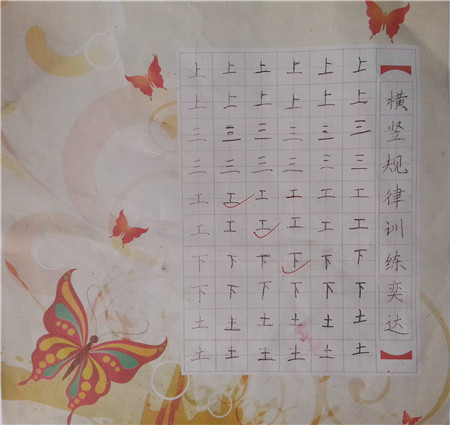 【横竖规律训练奕达】
上上三三工工下下土土
上上三三工工下下土土
上上三三工工下下土土
上上三三工工下下土土
上上三三工工下下土土
上上三三工工下下土土